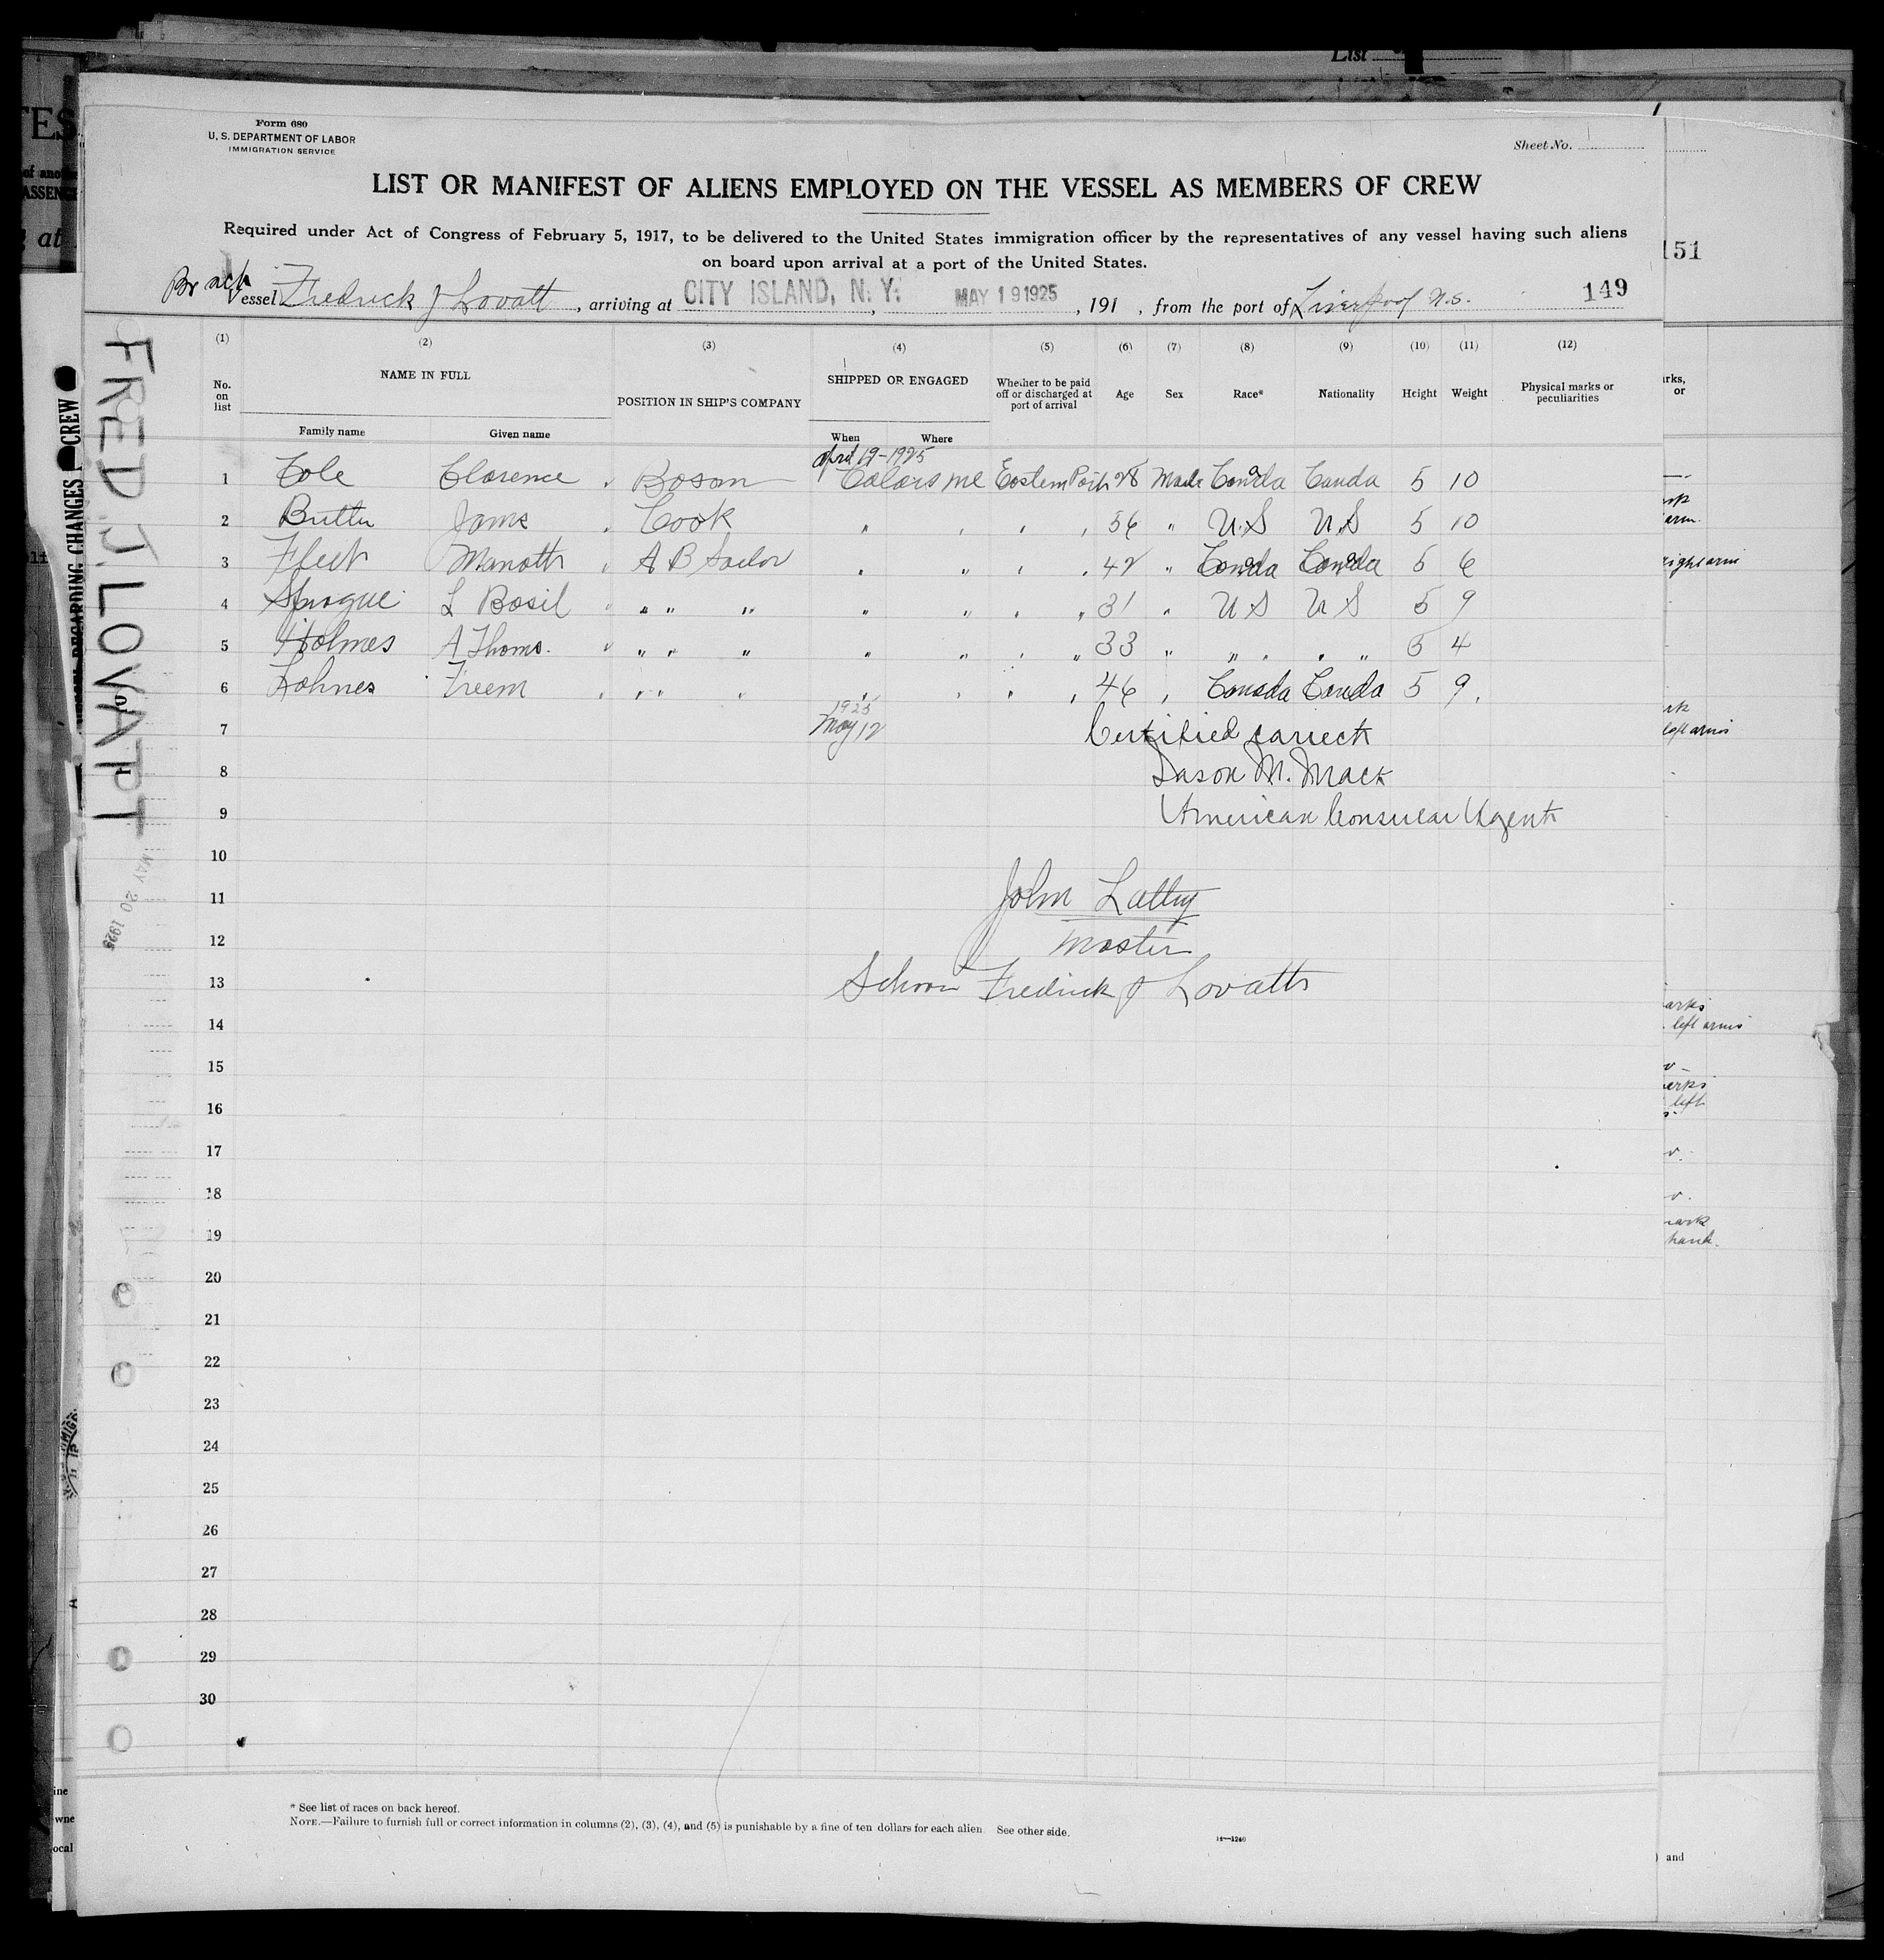 List
Form 680
U. S. DEPARTMENT OF LABOR
IMMIGRATION SERVICE
Sheet No. 1
LIST OR MANIFEST OF ALIENS EMPLOYED ON THE VESSEL AS MEMBERS OF CREW
Required under Act of Congress of February 5, 1917, to be delivered to the United States immigration officer by the representatives of any vessel having such aliens
on board upon arrival at a port of the United States.
151
Vessel Fredrick J Lovatt, arriving at CITY ISLAND, N. Y., MAY 19 1925, 191 , from the port of Liverpool N.S. 149
(1) (2) (3) (4) (5) (6) (7) (8) (9) (10) (11) (12)
No. on list NAME IN FULL POSITION IN SHIP'S COMPANY SHIPPED OR ENGAGED Whether to be paid off or discharged at port of arrival Age Sex Race* Nationality Height Weight Physical marks or peculiarities
Family name Given name When Where
April 19-1925
1 Cole Clarence Bosom Calais Me Eastern Port 28 Male Canada Canda 5 10
2 Butler Jams Cook " " " " 56 " U.S U.S 5 10
3 Fleet Manoth A B Sailor " " " " 42 " Canada Canada 5 6
4 Sprague L Basil " " " " " " " 31 " U S U S 5 9
5 Holmes A Thoms. " " " " " " " 33 " " " " " 5 4
6 Lohnes Freem " " " " " " " 46 " Canada Canda 5 9
1925
7 May 12 Certified correct
8 Jason M. Mack
9 American Consular Agent
10
11 John Lattuy
12 Master
13 Schoon Fredrick J Lovatt
14
15
16
17
18
19
20
21
22
23
24
25
26
27
28
29
30
FRED J. LOVATT
MAY 20 1925
* See list of races on back hereof.
NOTE.—Failure to furnish full or correct information in columns (2), (3), (4), and (5) is punishable by a fine of ten dollars for each alien. See other side.
14—1240